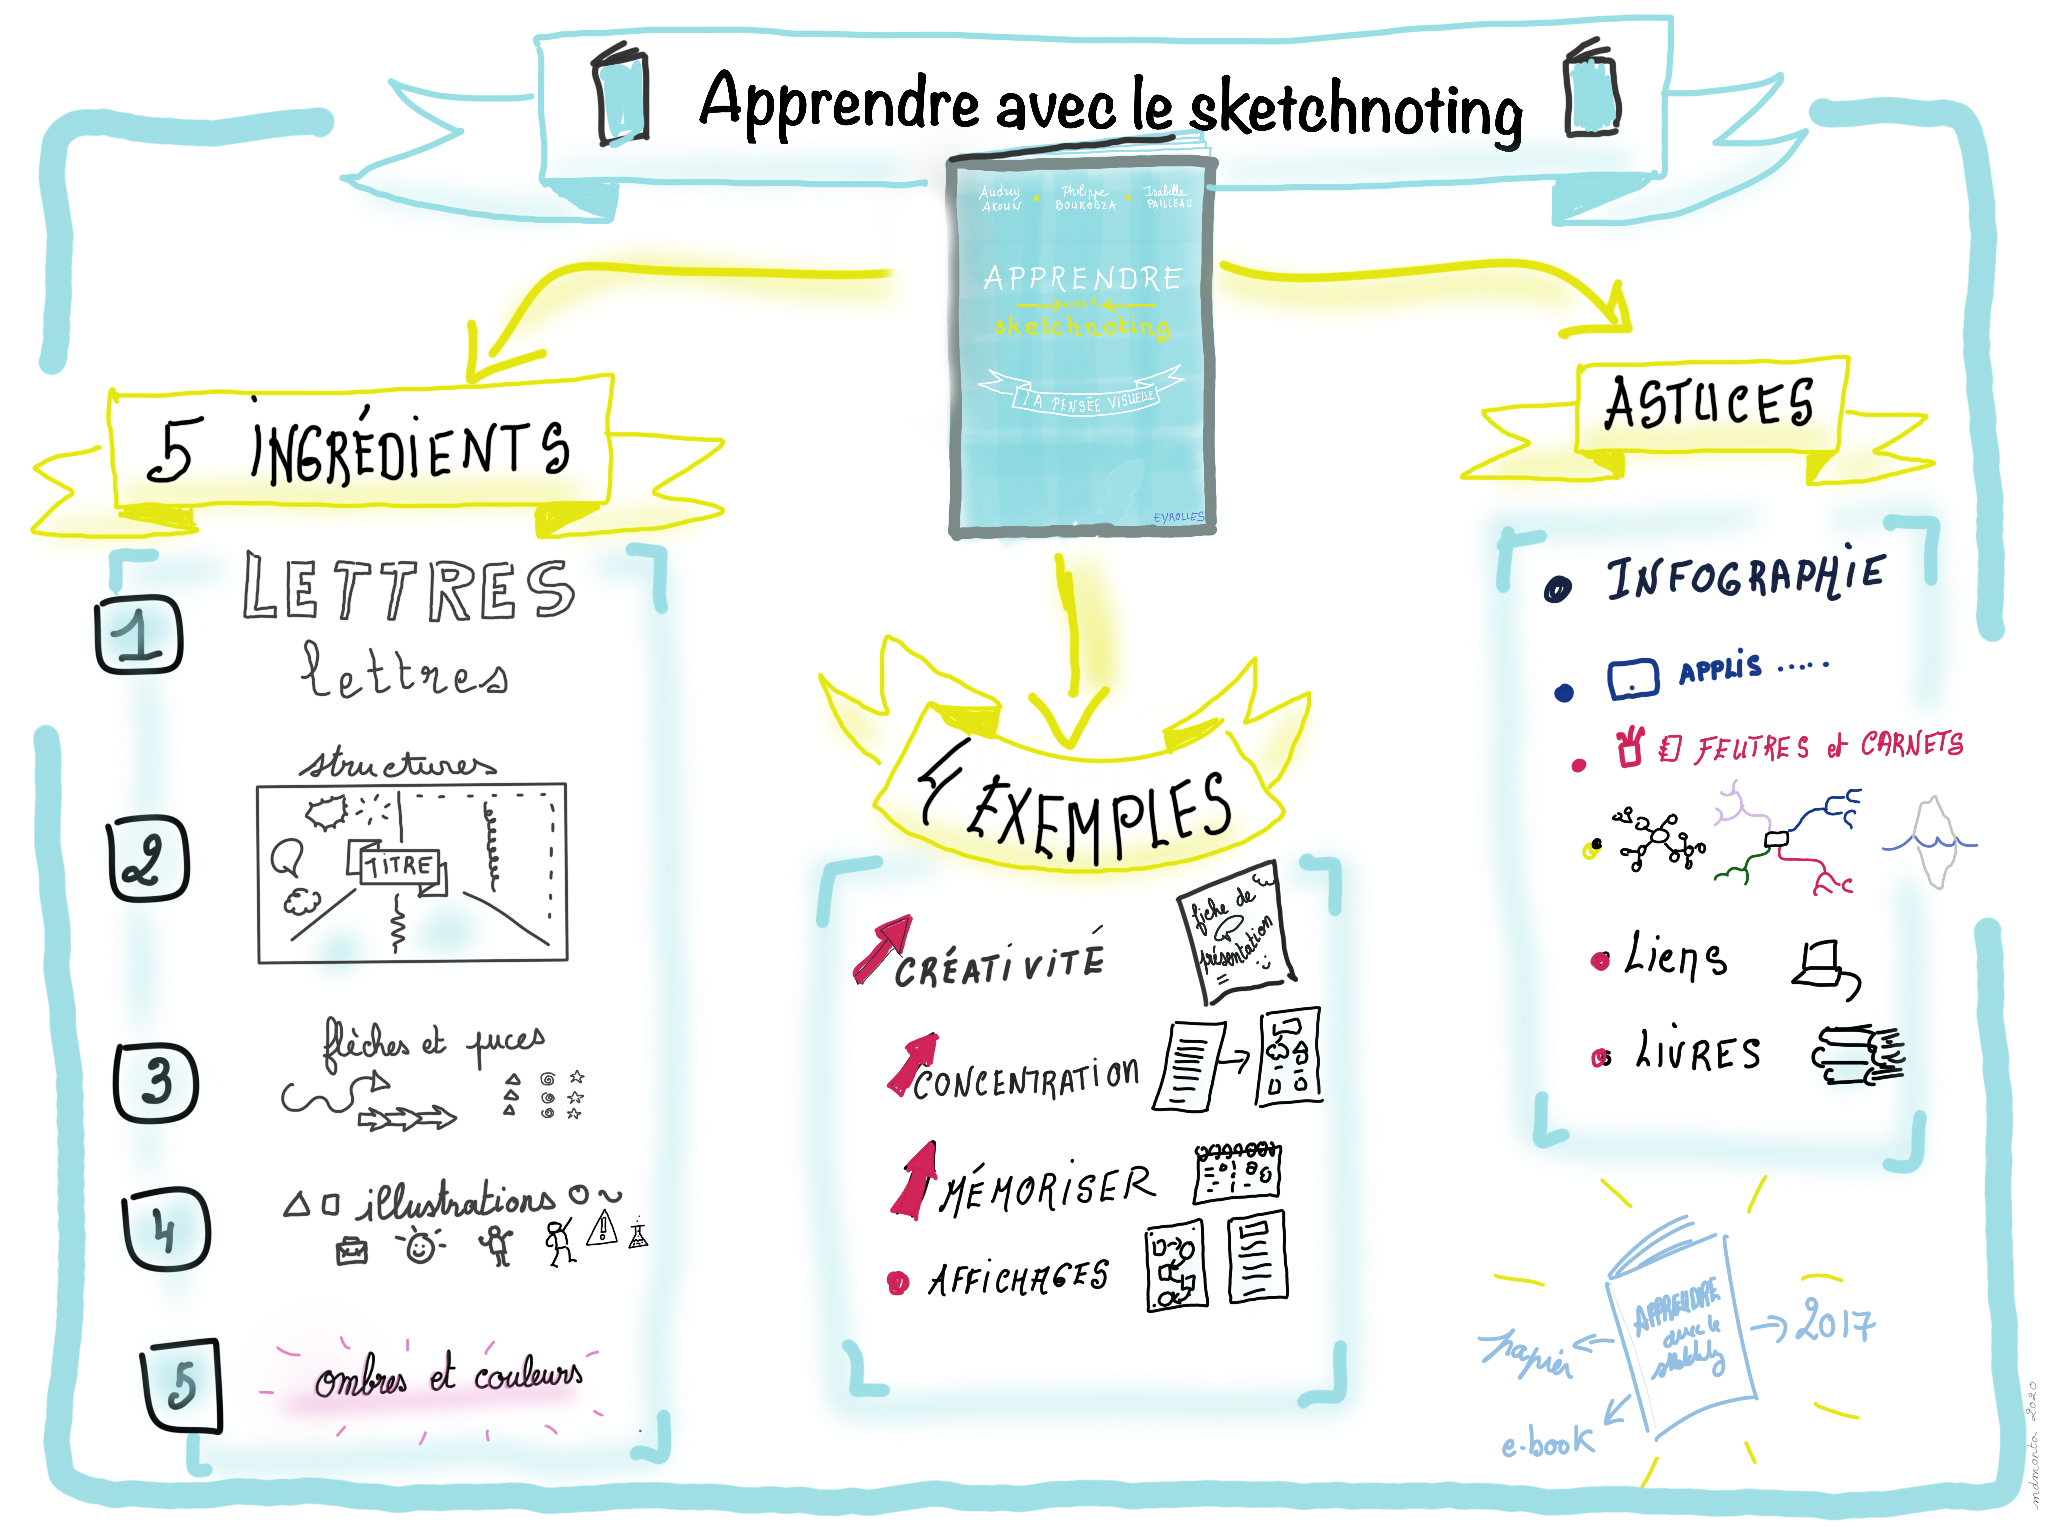 Apprendre avec le sketchnoting
Audrey AKOUN • Philippe BOUKOBZA • Isabelle PAILLEAU
APPRENDRE
avec le
sketchnoting
LA PENSÉE VISUELLE
EYROLLES
5 INGRÉDIENTS
1
LETTRES
lettres
2
structures
TITRE
3
flèches et puces
4
illustrations
5
ombres et couleurs
4 EXEMPLES
CRÉATIVITÉ
fiche de
présentation
CONCENTRATION
MÉMORISER
AFFICHAGES
ASTUCES
INFOGRAPHIE
APPLIS .....
FEUTRES et CARNETS
Liens
LIVRES
APPRENDRE
avec le
papier
2017
e-book
mdmonta 2020